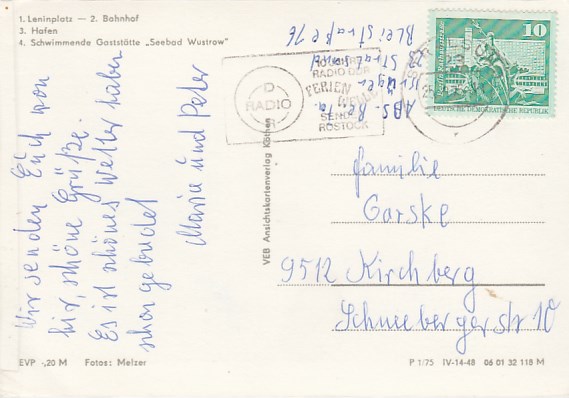 1. Leninplatz — 2. Bahnhof
3. Hafen
4. Schwimmende Gaststätte „Seebad Wustrow"
Wir senden Euch von
hier, schöne Grüße.
Es ist schönes Wetter haben
schon gebadet
Maria und Peter
EVP -,20 M Fotos: Melzer
VEB Ansichtskartenverlag Köthen
ABS. Rita
Krüger
23 Stralsund
Bleistraße 76
RADIO DDR
FERIEN
WELLE
SENDER
ROSTOCK
RADIO
10
DEUTSCHE DEMOKRATISCHE REPUBLIK
Familie
Garske
9512 Kirchberg
Schneebergerstr 10
P 1/75 IV-14-48 06 01 32 118 M